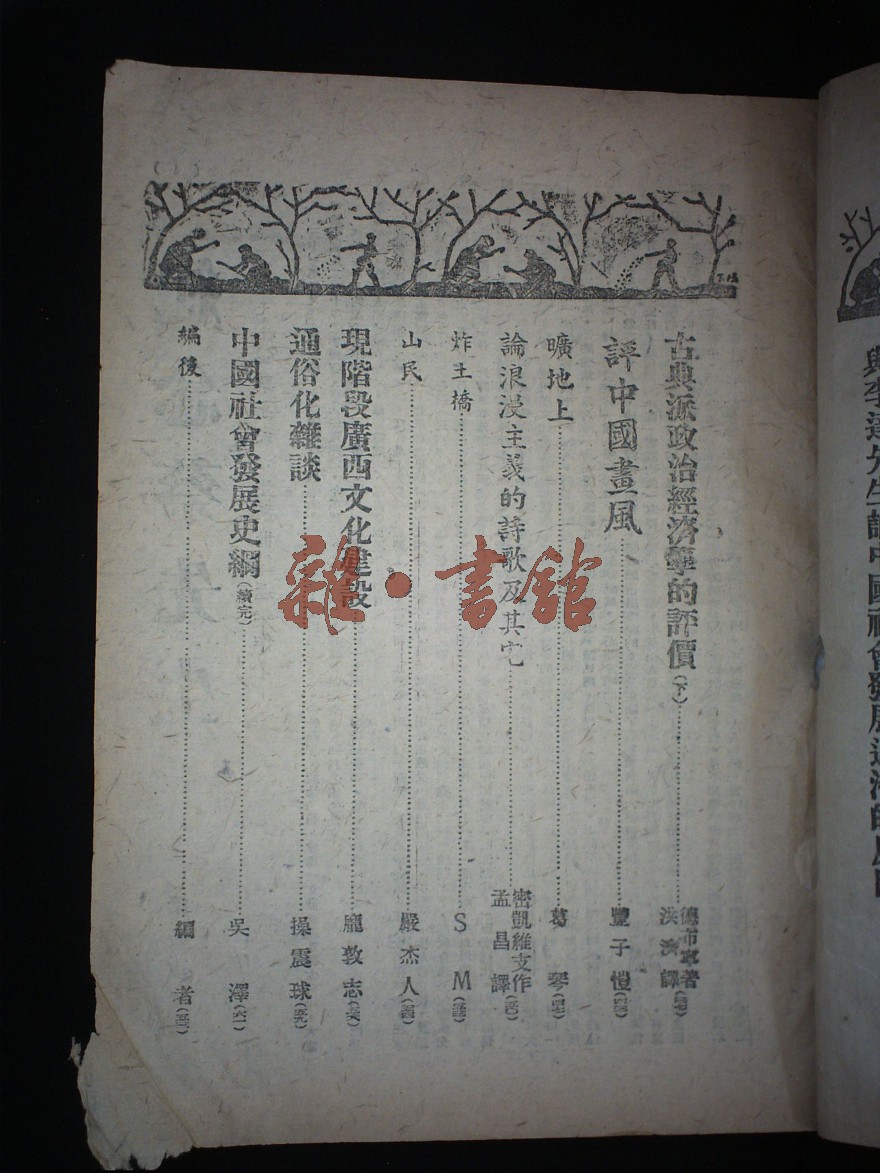 古典派政治經濟學的評價(下)
德布寧著
譯
評中國畫風
豐子愷
曠地上
葛琴
論浪漫主義的詩歌及其它
密凱維支作
孟昌譯
炸土橋
S M
山民
嚴杰人
現階段廣西文化建設
龐敦志
通俗化雜談
操震球
中國社會發展史綱(續完)
吳澤
編後
編者
雜·書館
與李達先生論中國社會發展